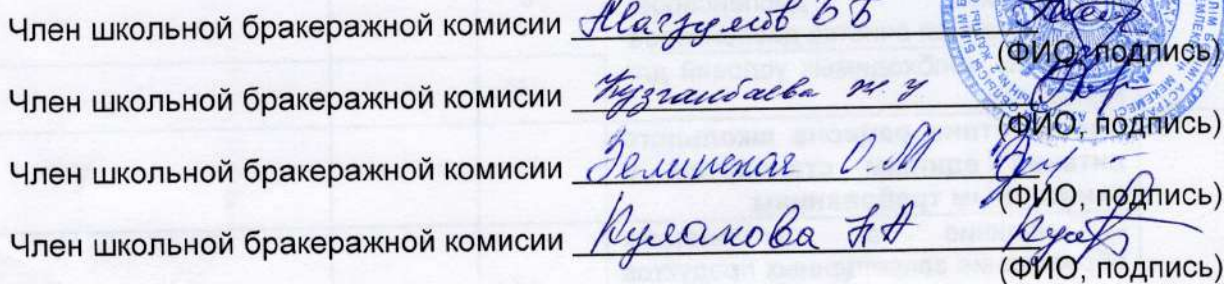 Член школьной бракеражной комисии Магзумов Б Б
(ФИО, подпись)
Член школьной бракеражной комисии Кузганбаева Ж. У
(ФИО, подпись)
Член школьной бракеражной комисии Зелинская О.М
(ФИО, подпись)
Член школьной бракеражной комисии Кулакова Н А
(ФИО, подпись)